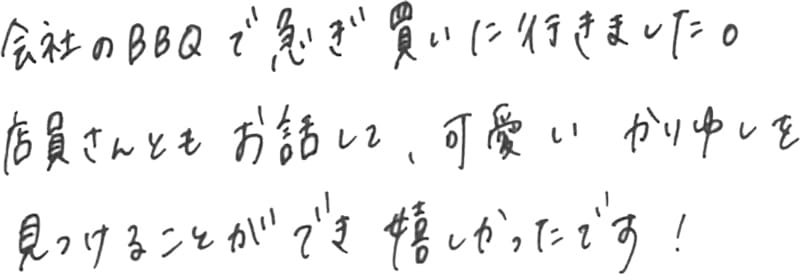 会社のBBQで急ぎ買いに行きました。
店員さんともお話して、可愛いかりゆしを
見つけることができ嬉しかったです!